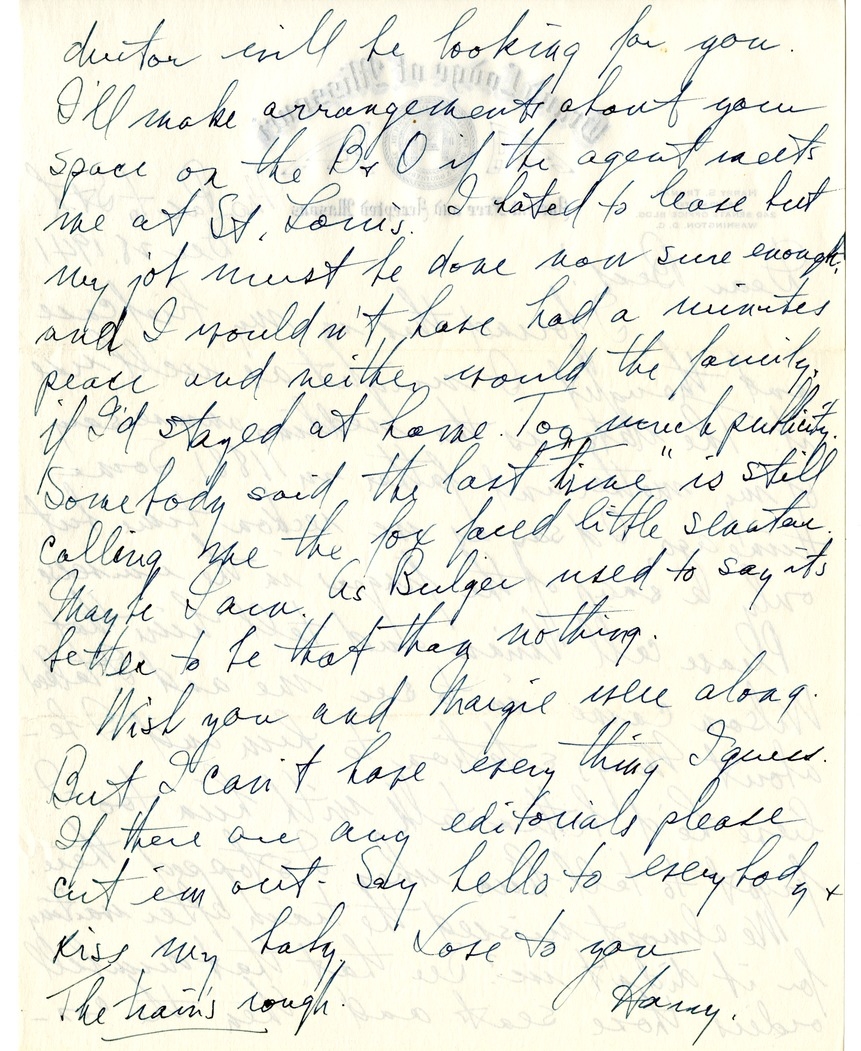 ductor will be looking for you.
I'll make arrangements about your
space on the B & O if the agent meets
me at St. Louis. I hated to leave but
my job must be done now sure enough,
and I wouldn't have had a minutes
peace and neither would the family,
if I'd stayed at home. Too much publicity.
Somebody said the last "time" is still
calling me the fox faced little senator.
Maybe I am. As Bulger used to say its
better to be that than nothing.
Wish you and Margie were along.
But I can't have every thing I guess.
If there are any editorials please
cut 'em out - Say hello to everybody &
kiss my baby. Love to you
The train's rough. Harry.
Grand Lodge of Missouri
Ancient Free and Accepted Masons
HARRY S. TRUMAN
240 SENATE OFFICE BLDG.
WASHINGTON, D. C.